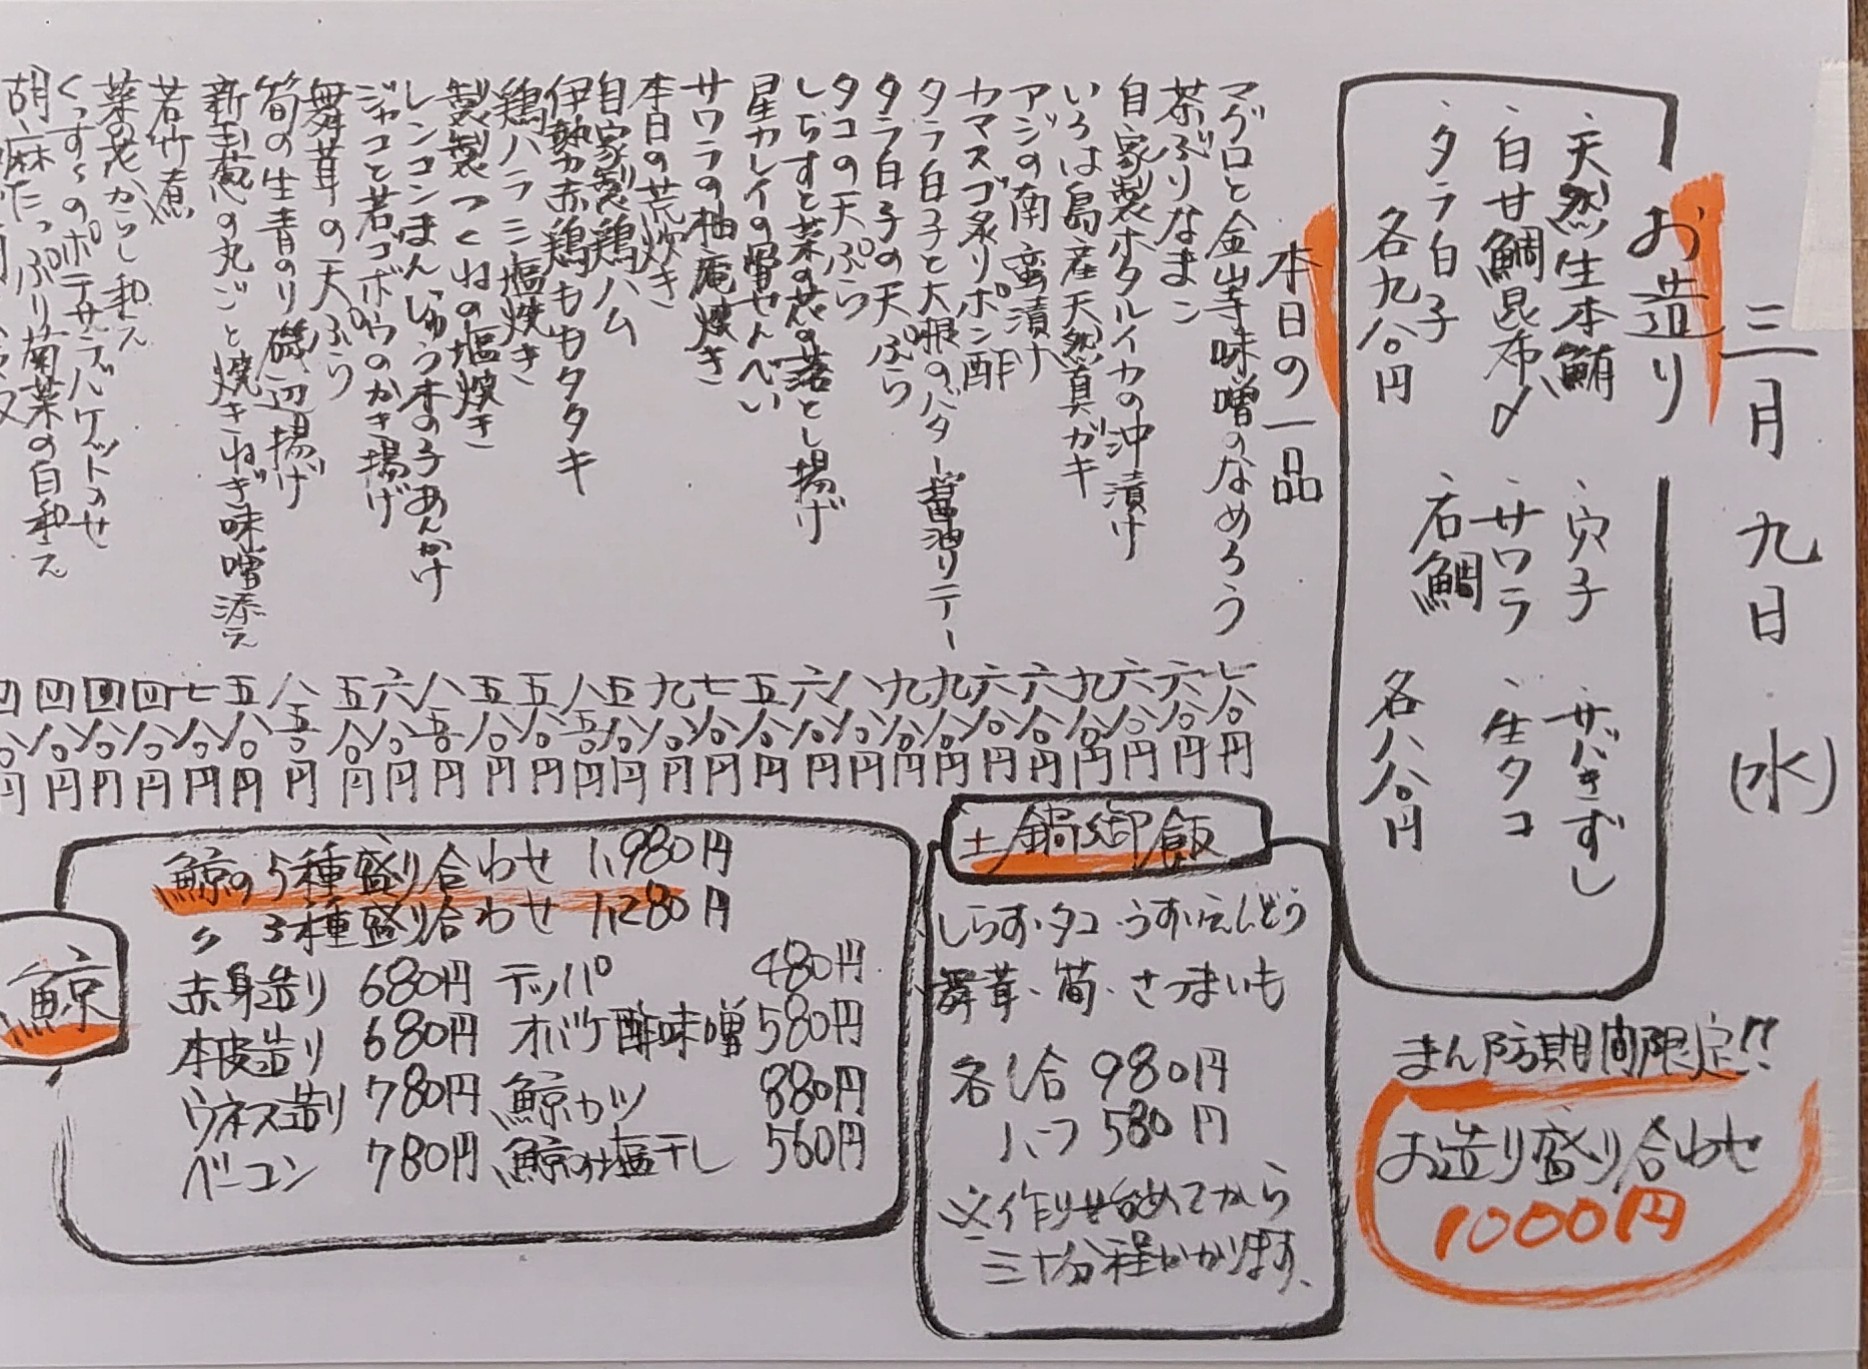 三月九日(水)
お造り
・天然生本鮪
・白甘鯛昆布〆
・タラ白子
各九八〇円
・穴子
・サワラ
・石鯛
・サバきずし
・生タコ
各八八〇円
まん防期間限定!!
お造り盛り合わせ
1000円
本日の一品
マグロと金山寺味噌のなめろう 七八〇円
茶ぶりなまこ 六八〇円
自家製ホタルイカの沖漬け 六八〇円
いろは島産天然真ガキ 九八〇円
アジの南蛮漬け 六八〇円
カマスゴ炙りポン酢 六八〇円
タラ白子と大根のバター醤油ソテー 九八〇円
タラ白子の天ぷら 九八〇円
タコの天ぷら 八八〇円
しらすと菜の花の落とし揚げ 六八〇円
星カレイの骨せんべい 五八〇円
サワラの柚庵焼き 七八〇円
本日の荒炊き 九八〇円
自家製鶏ハム 五八〇円
伊勢赤鶏ももタタキ 八五〇円
鶏ハラミ塩焼き 五八〇円
製つくねの塩焼き 五八〇円
レンコンまんじゅう木の子あんかけ 八五〇円
ジャコと若ゴボウのかき揚げ 六八〇円
舞茸の天ぷら 五八〇円
筍の生青のり磯辺揚げ 八五〇円
新玉葱の丸ごと焼きねぎ味噌添え 五八〇円
若竹煮 七八〇円
菜の花からし和え 四八〇円
くっすぅのポテサラバケットのせ 四八〇円
胡麻たっぷり菊菜の白和え 四八〇円
四八〇円
土鍋御飯
しらす・タコ・うすいえんどう
舞茸・筍・さつまいも
各1合 980円
ハーフ 580円
※作り始めてから
三十分程かかります、
鯨
鯨の5種盛り合わせ 1,980円
〃 3種盛り合わせ 1,280円
赤身造り 680円 テッパ 480円
本皮造り 680円 オバケ酢味噌 580円
ウネス造り 780円 鯨カツ 880円
ベーコン 780円 鯨の塩干し 560円